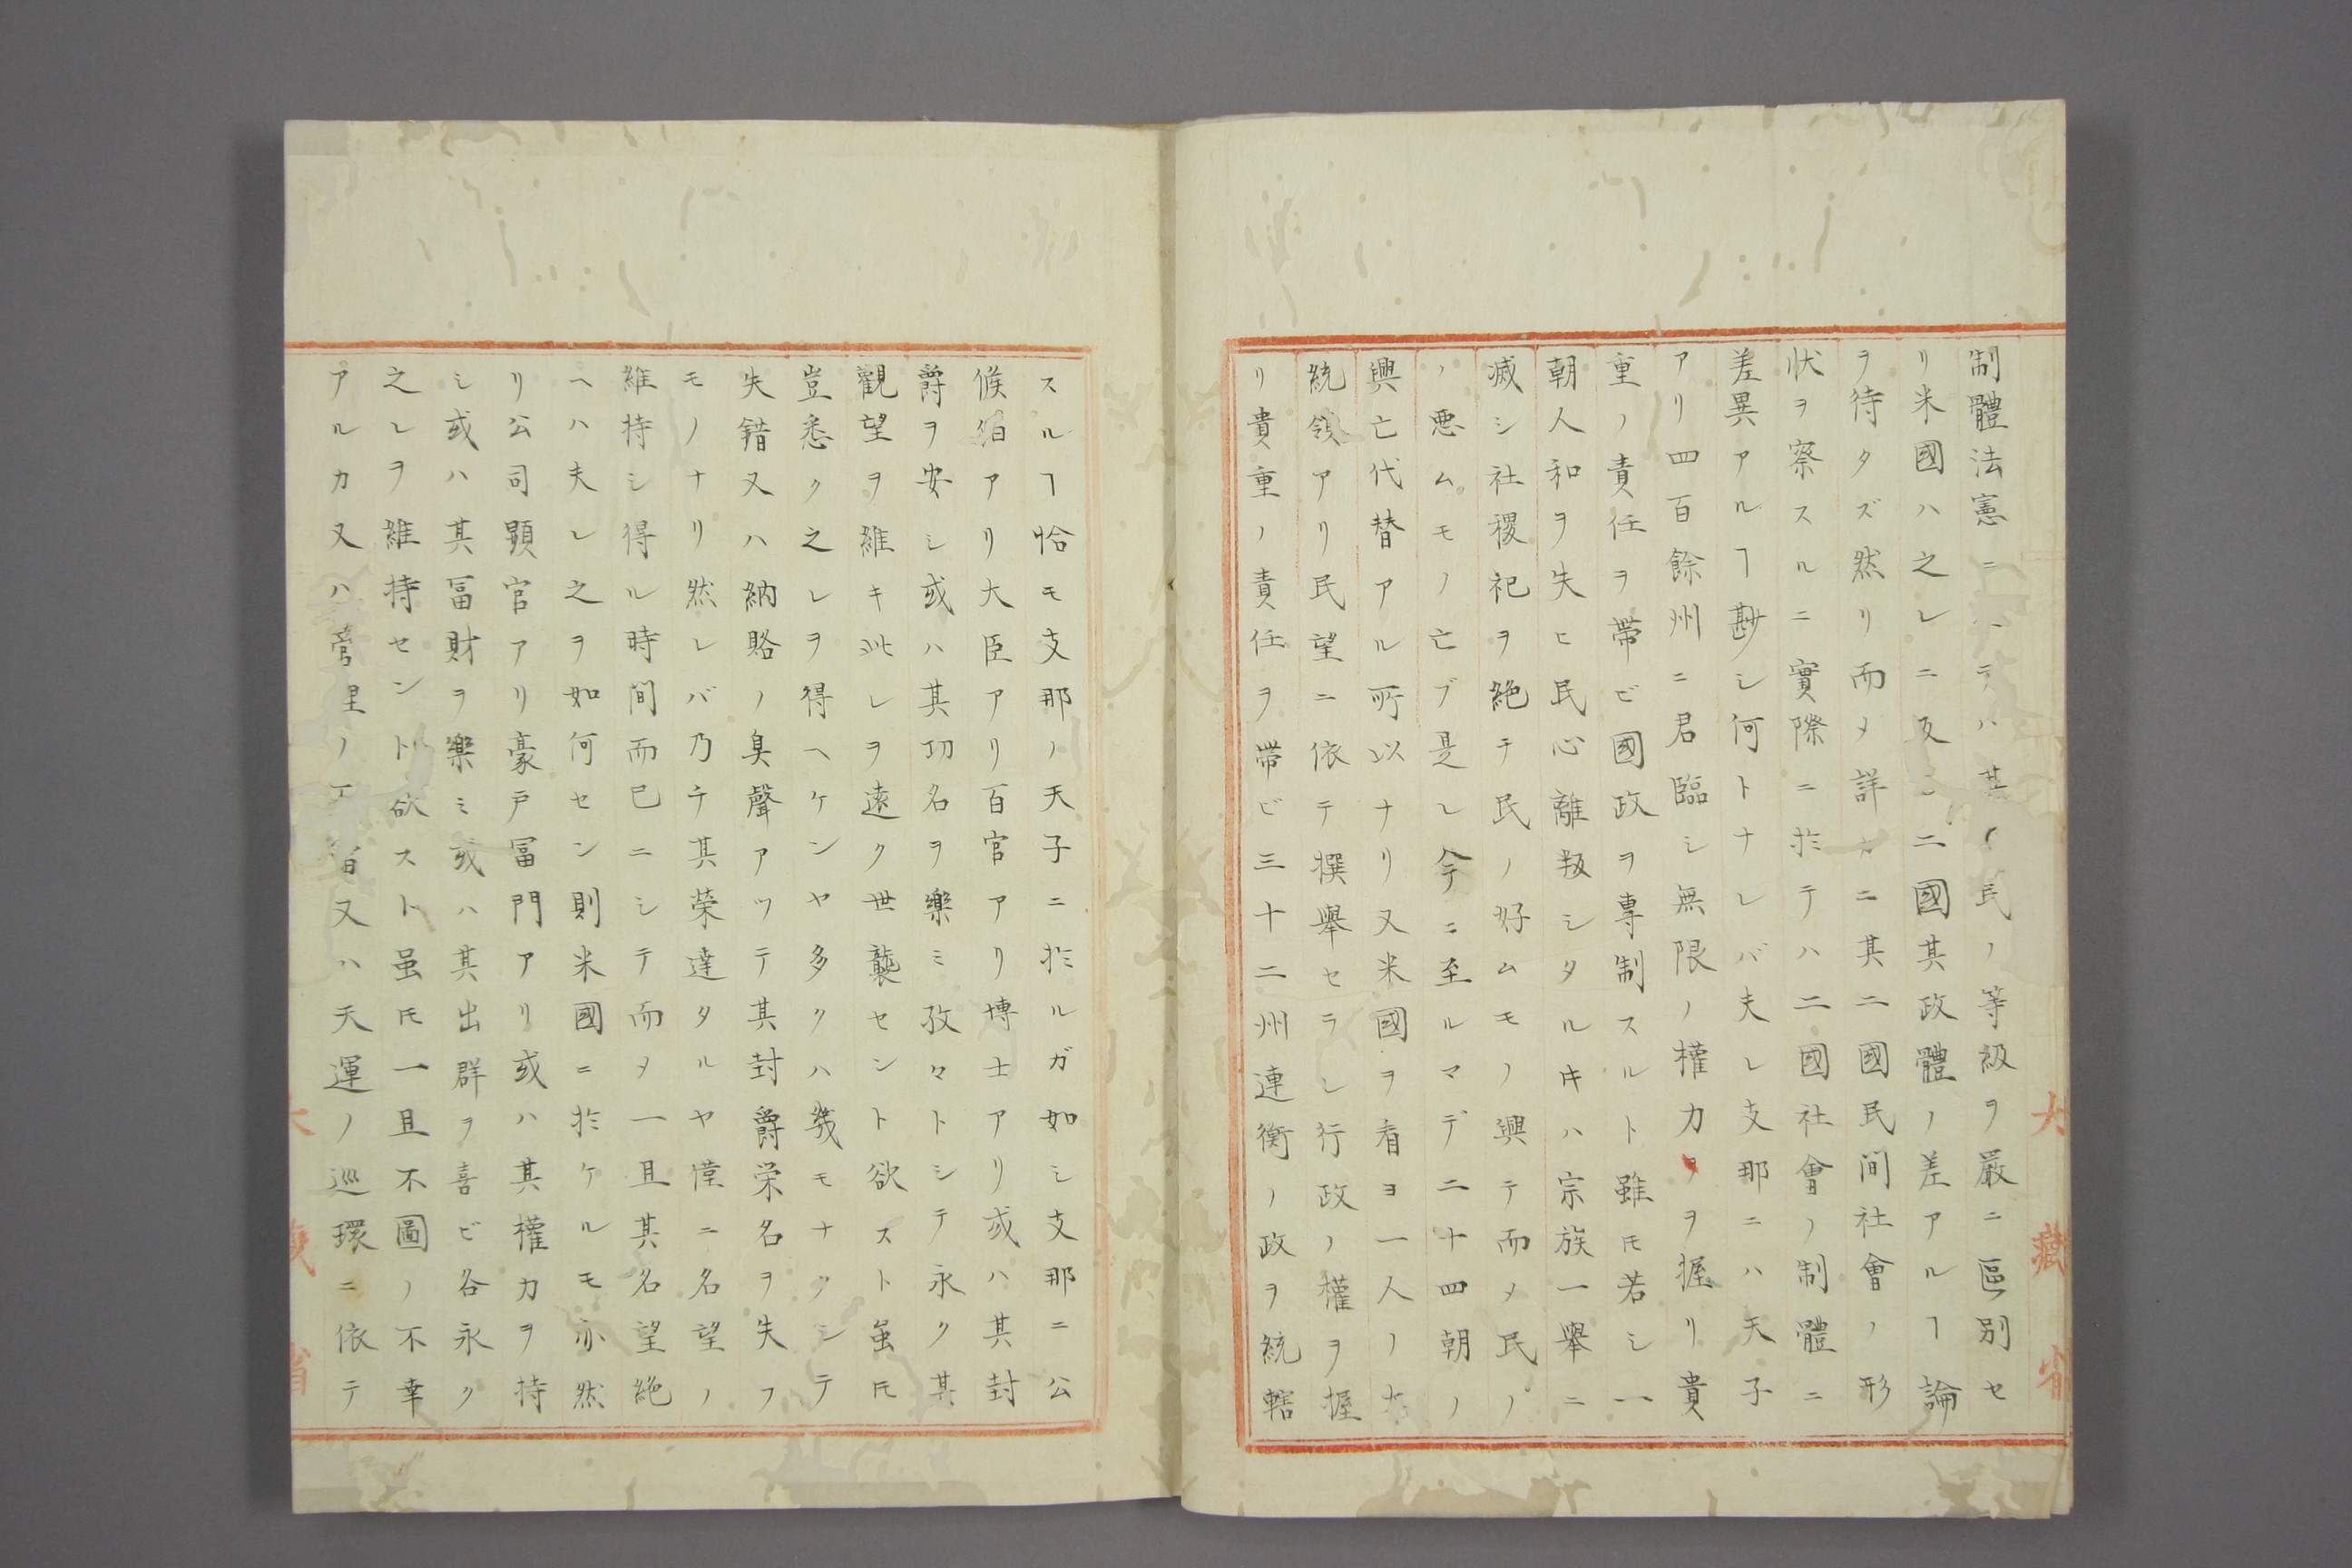 制體法憲ニハテハ其ノ民ノ等級ヲ嚴ニ區別セ
リ米國ハ之レニ反シ二國其政體ノ差アルヿ論
ヲ待タズ然リ而メ詳カニ其二國民間社會ノ形
状ヲ察スルニ實際ニ於テハ二國社會ノ制體ニ
差異アルヿ尠シ何トナレバ夫レ支那ニハ天子
アリ四百餘州ニ君臨シ無限ノ權力ヲヲ握リ貴
重ノ責任ヲ帶ビ國政ヲ專制スルト雖モ若シ一
朝人和ヲ失ヒ民心離叛シタルキハ宗族一舉ニ
滅シ社稷祀ヲ絶チ民ノ好ムモノ興テ而メ民ノ
ノ悪ムモノ亡ブ是レ今ニ至ルマデ二十四朝ノ
興亡代替アル所以ナリ又米國ヲ看ヨ一人ノ大
統領アリ民望ニ依テ撰舉セラレ行政ノ權ヲ握
リ貴重ノ責任ヲ帶ビ三十二州連衡ノ政ヲ統轄
スルヿ恰モ支那ノ天子ニ於ルガ如シ支那ニ公
候伯アリ大臣アリ百官アリ博士アリ或ハ其封
爵ヲ安シ或ハ其功名ヲ樂ミ孜々トシテ永ク其
觀望ヲ維キ此レヲ遠ク世襲セント欲スト虽モ
豈悉ク之レヲ得ヘケンヤ多クハ幾モナクシテ
失錯又ハ納賂ノ臭聲アツテ其封爵栄名ヲ失フ
モノナリ然レバ乃チ其榮達タルヤ僅ニ名望ノ
維持シ得ル時間而已ニシテ而メ一旦其名望絶
ヘハ夫レ之ヲ如何セン則米國ニ於ケルモ亦然
リ公司顕官アリ豪戸冨門アリ或ハ其權力ヲ持
シ或ハ其冨財ヲ樂ミ或ハ其出群ヲ喜ビ各永ク
之レヲ維持セント欲スト虽モ一旦不圖ノ不幸
アルカ又ハ管理ノ又ハ天運ノ巡環ニ依テ
大藏省